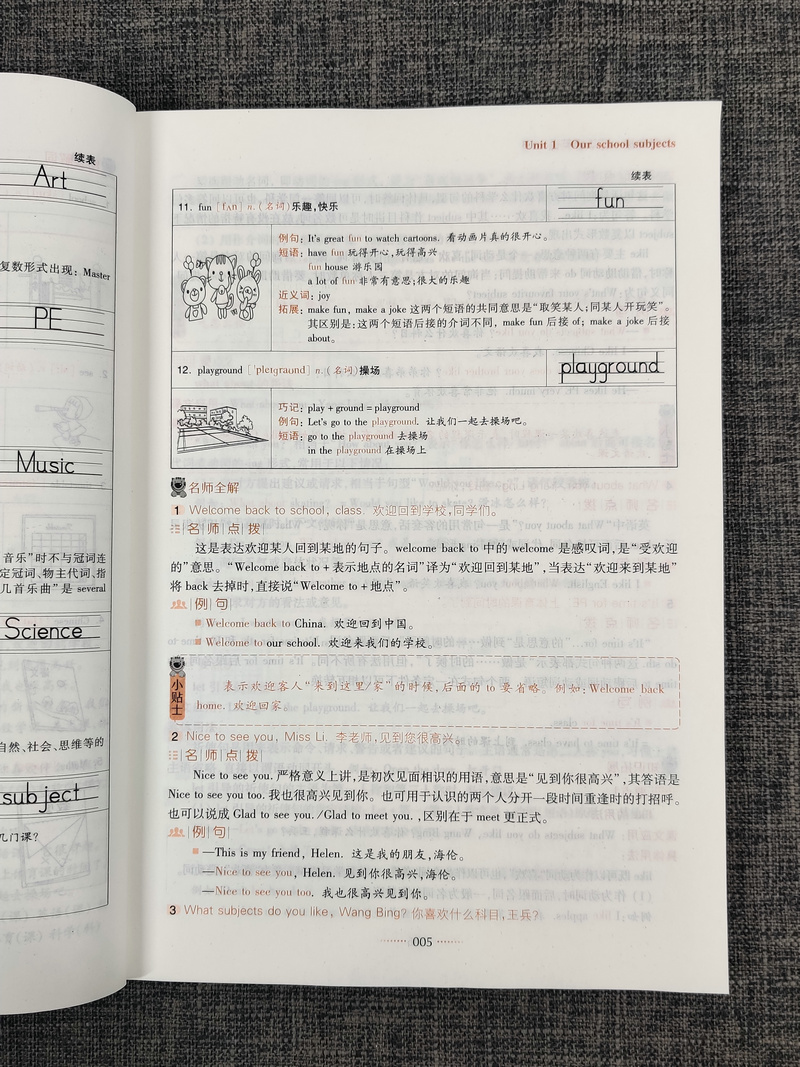 续表
Art
复数形式出现: Master
PE
Music
音乐”时不与冠词连
定冠词、物主代词、指
几首乐曲”是 several
Science
自然、社会、思维等的
subject
几门课?
Unit 1 Our school subjects
续表
11. fun [fʌn] n.(名词)乐趣,快乐
fun
例句: It's great fun to watch cartoons. 看动画片真的很开心。
短语: have fun 玩得开心,玩得高兴
fun house 游乐园
a lot of fun 非常有意思;很大的乐趣
近义词: joy
拓展: make fun, make a joke 这两个短语的共同意思是“取笑某人;同某人开玩笑”。
其区别是:这两个短语后接的介词不同, make fun 后接 of; make a joke 后接
about。
12. playground [ˈpleɪɡraʊnd] n.(名词)操场
playground
巧记: play + ground = playground
例句: Let's go to the playground. 让我们一起去操场吧。
短语: go to the playground 去操场
in the playground 在操场上
名师全解
1 Welcome back to school, class. 欢迎回到学校,同学们。
名师点拨
这是表达欢迎某人回到某地的句子。welcome back to 中的 welcome 是感叹词,是“受欢迎
的”意思。“Welcome back to + 表示地点的名词”译为“欢迎回到某地”,当表达“欢迎来到某地”
将 back 去掉时,直接说“Welcome to + 地点”。
例句
Welcome back to China. 欢迎回到中国。
Welcome to our school. 欢迎来我们的学校。
小贴士
表示欢迎客人“来到这里/家”的时候,后面的 to 要省略。例如: Welcome back
home. 欢迎回家。
2 Nice to see you, Miss Li. 李老师,见到您很高兴。
名师点拨
Nice to see you. 严格意义上讲,是初次见面相识的用语,意思是“见到你很高兴”,其答语是
Nice to see you too. 我也很高兴见到你。也可用于认识的两个人分开一段时间重逢时的打招呼。
也可以说成 Glad to see you. /Glad to meet you. ,区别在于 meet 更正式。
例句
—This is my friend, Helen. 这是我的朋友,海伦。
—Nice to see you, Helen. 见到你很高兴,海伦。
—Nice to see you too. 我也很高兴见到你。
3 What subjects do you like, Wang Bing? 你喜欢什么科目,王兵?
005